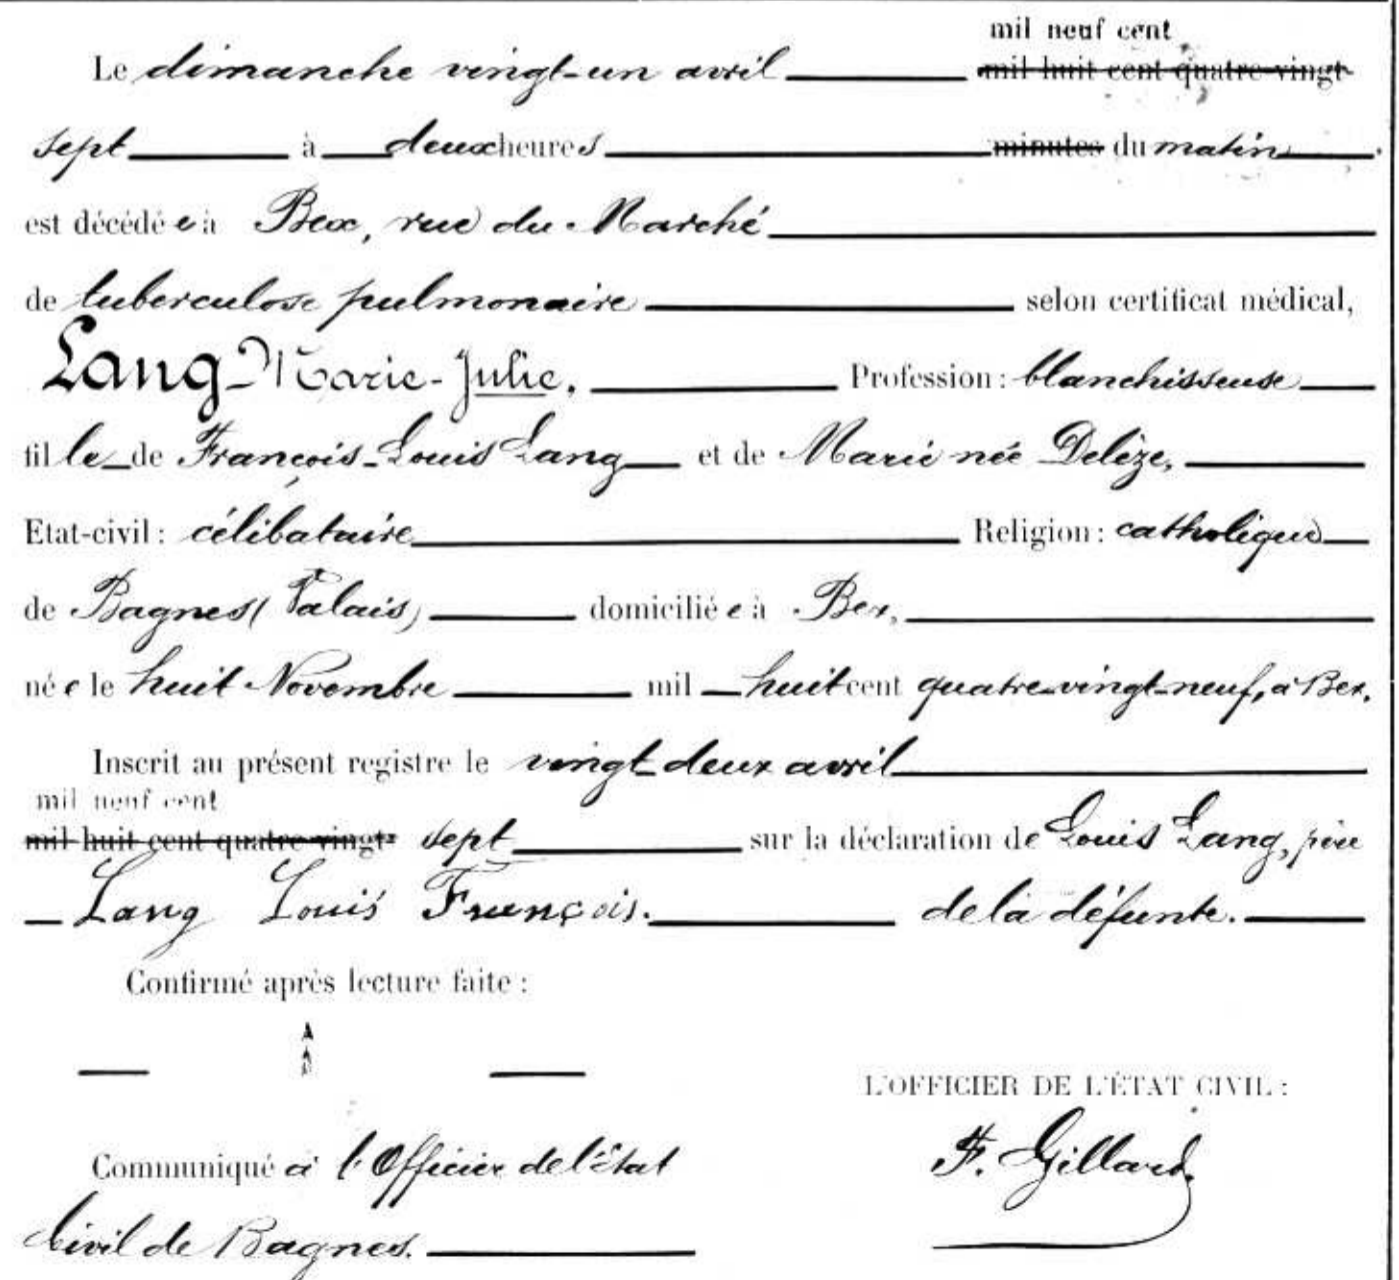 mil neuf cent
Le dimanche vingt-un avril mil huit cent quatre-vingt-
sept à deux heures minutes du matin.
est décédée à Bex, rue du Marché
de tuberculose pulmonaire selon certificat médical,
Lang-Marie-Julie. Profession: blanchisseuse
fille de François-Louis Lang et de Marie née Delèze,
Etat-civil: célibataire Religion: catholique
de Bagnes (Valais) domiciliée à Bex,
née le huit Novembre mil huit cent quatre-vingt-neuf, à Bex.
Inscrit au présent registre le vingt-deux avril
mil neuf cent
mil huit cent quatre-vingt- sept sur la déclaration de Louis Lang, père
Lang Louis François. de la défunte.
Confirmé après lecture faite:
L'OFFICIER DE L'ÉTAT CIVIL:
Communiqué à l'Officier de l'état F. Gillard.
Civil de Bagnes.